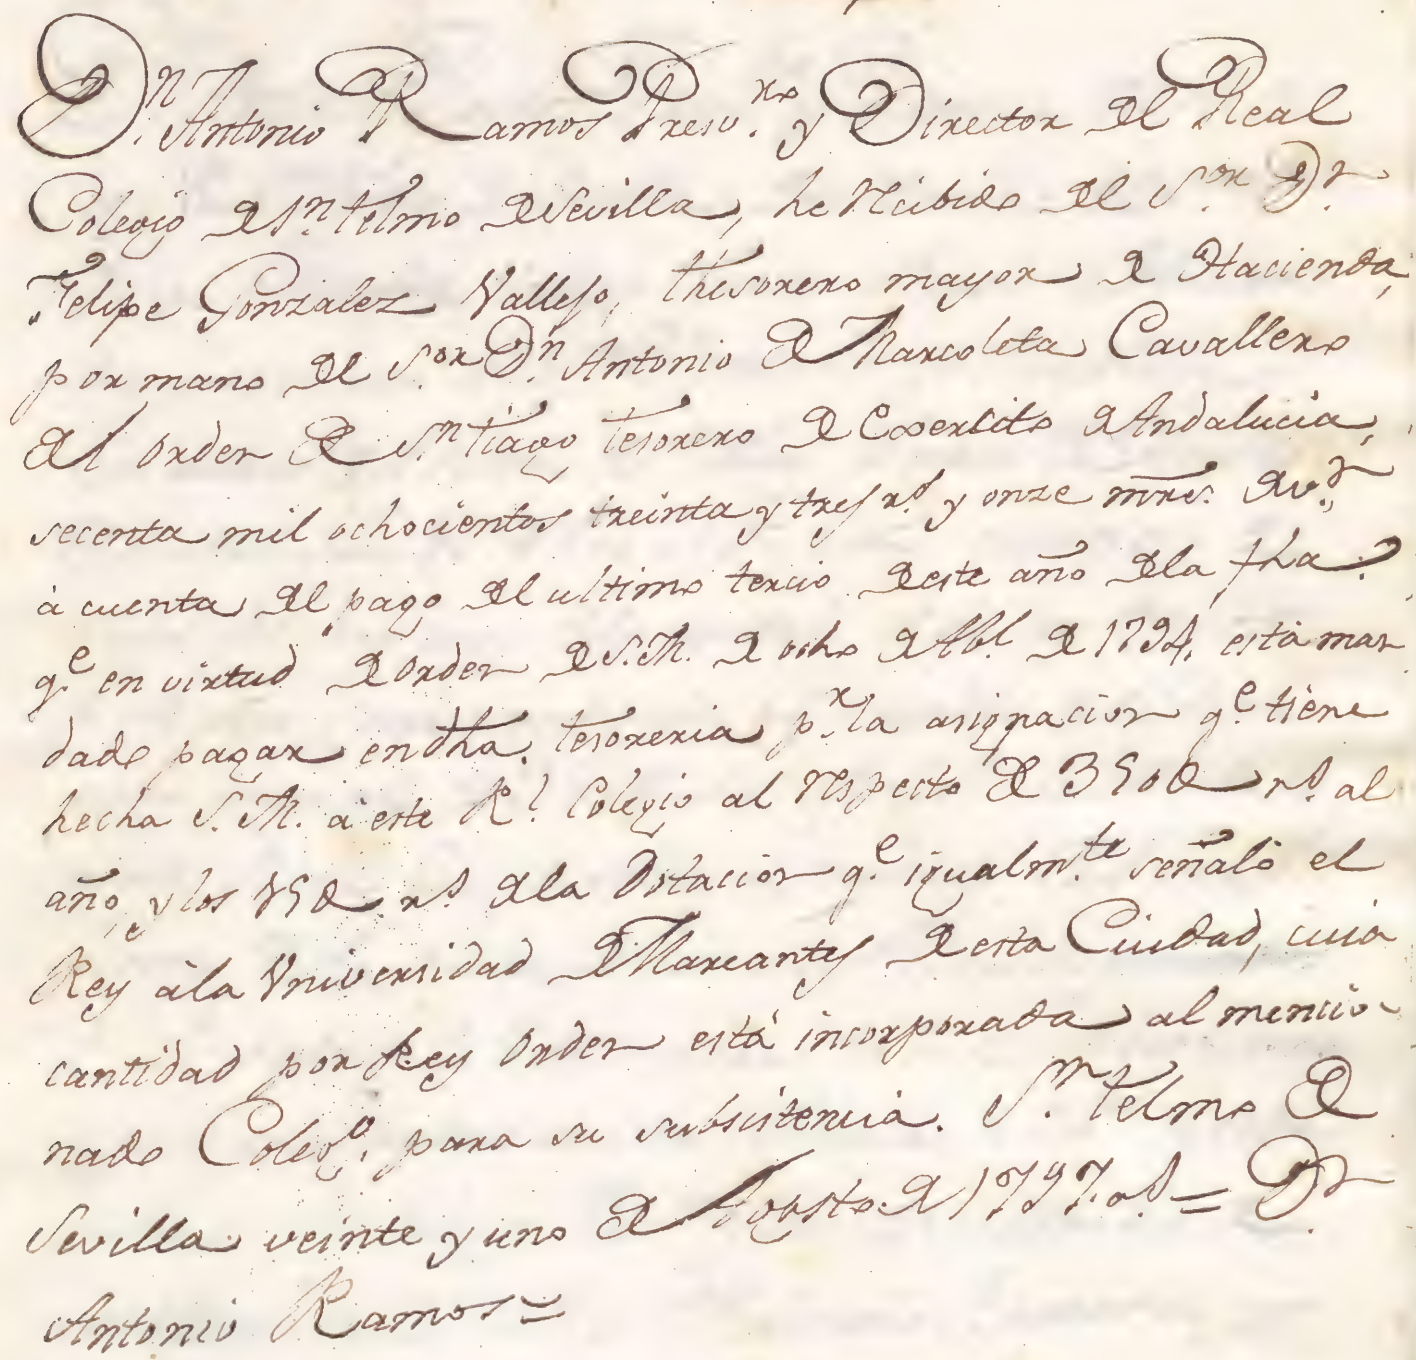 Dn. Antonio Ramos Presvro. y Director del Real
Colegio de Sn. telmo de Sevilla, he recibido del Sor. Dn.
Felipe Gonzalez Vallejo, thesorero mayor de Hacienda,
por mano del Sor. Dn. Antonio de Narcoleta Cavallero
del orden de Sntiago tesorero de Exercito de Andalucia,
secenta mil ochocientos treinta y tres rs. y onze mrs. de vn.,
à cuenta del pago del ultimo tercio de este año de la fha.
qe. en virtud de orden de S.M. de ocho de Abl. de 1794, està man
dado pagar en dha. tesoreria pr. la asignacion qe. tiene
hecha S.M. à este Rl. Colegio al respecto de 350@ rs. al
año, y los 15@ rs. de la Dotacion qe. igualmte. señalò el
Rey à la Vniversidad de Mareantes de esta Ciudad, cuia
cantidad por Rey orden está incorporada al mencio
nado Colego. para su subsistencia. Sn. Telmo de
Sevilla veinte y uno de Agosto de 1797. as = Dn.
Antonio Ramos =